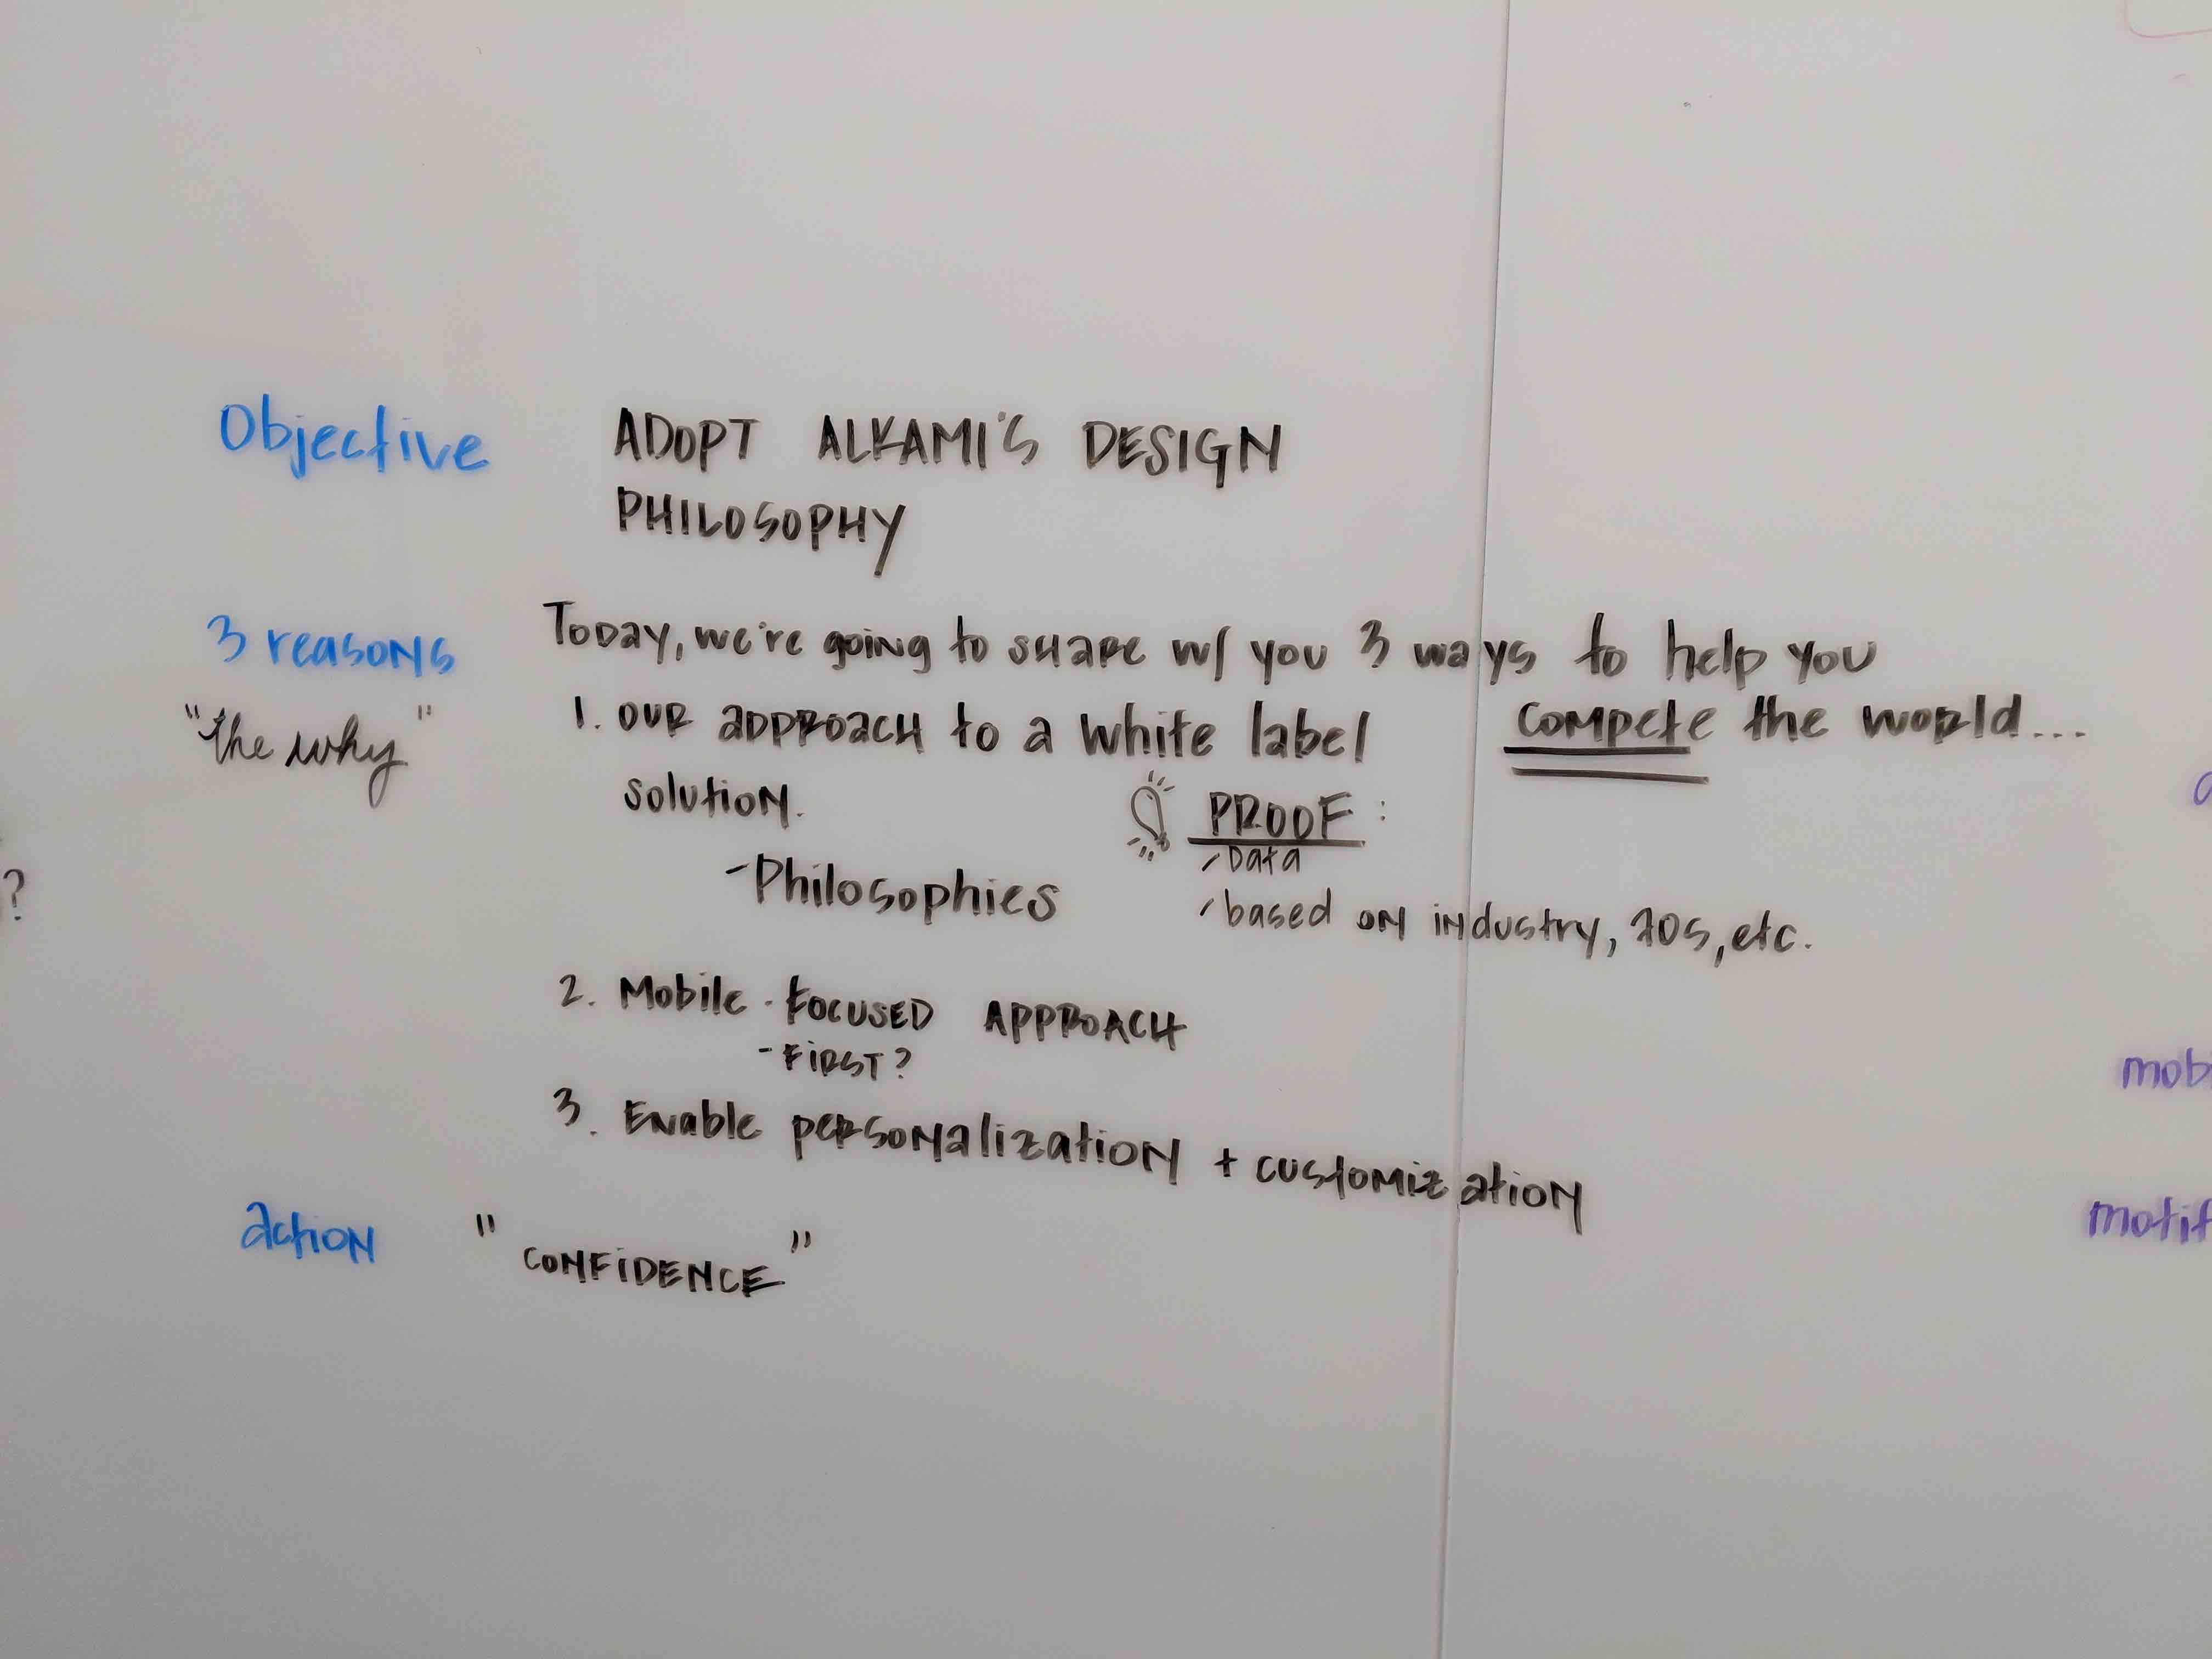 Objective ADOPT ALKAMI'S DESIGN
PHILOSOPHY
3 reasons Today, we're going to share w/ you 3 ways to help you
"the why" 1. our approach to a white label compete the world...
solution. PROOF :
- Data
- Philosophies - based on industry, , etc.
?
2. Mobile - focused APPROACH
- FIRST?
mob
3. Enable personalization + customization
action "CONFIDENCE"
motif